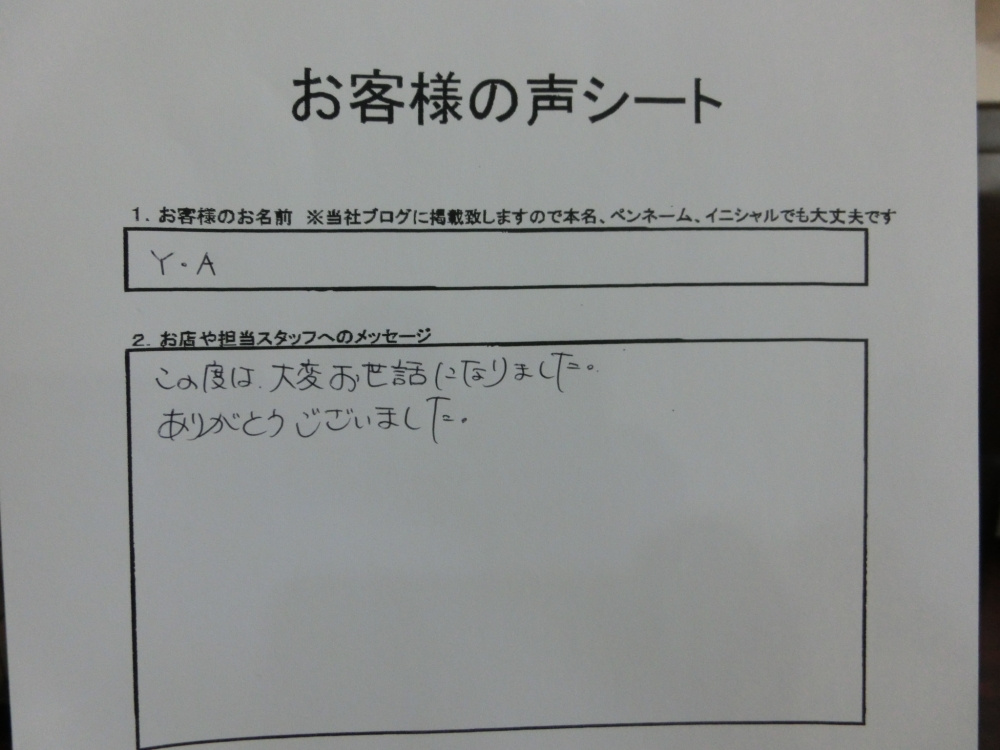 お客様の声シート
1. お客様のお名前 ※当社ブログに掲載致しますので本名、ペンネーム、イニシャルでも大丈夫です
Y・A
2. お店や担当スタッフへのメッセージ
この度は、大変お世話になりました。
ありがとうございました。